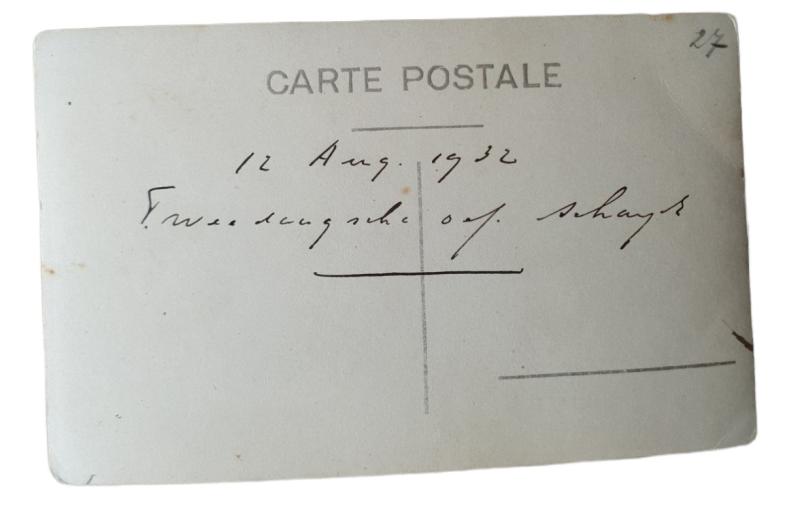 27
CARTE POSTALE
12 Aug. 1932
Tweedaagsche oef. Schayk